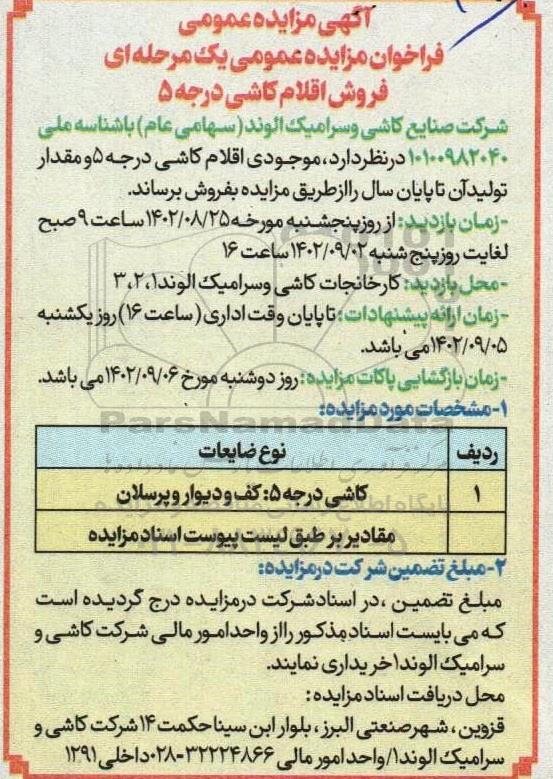 آگهی مزایده عمومی
فراخوان مزایده عمومی یک مرحله ای
فروش اقلام کاشی درجه ۵
شرکت صنایع کاشی وسرامیک الوند (سهامی عام) باشناسه ملی
۱۰۱۰۰۹۸۲۰۴۰ درنظردارد، موجودی اقلام کاشی درجه ۵و مقدار
تولیدآن تاپایان سال راازطریق مزایده بفروش برساند.
-زمان بازدید: از روزپنجشنبه مورخه ۱۴۰۲/۰۸/۲۵ ساعت ۹ صبح
لغایت روزپنج شنبه ۱۴۰۲/۰۹/۰۲ ساعت ۱۶
-محل بازدید: کارخانجات کاشی وسرامیک الوند۱، ۲، ۳
-زمان ارائه پیشنهادات: تاپایان وقت اداری (ساعت ۱۶) روز یکشنبه
۱۴۰۲/۰۹/۰۵ می باشد.
-زمان بازگشایی پاکات مزایده: روز دوشنبه مورخ ۱۴۰۲/۰۹/۰۶ می باشد.
۱-مشخصات مورد مزایده:
ردیف نوع ضایعات
۱ کاشی درجه ۵: کف و دیوار و پرسلان
مقادیر بر طبق لیست پیوست اسناد مزایده
۲-مبلغ تضمین شرکت درمزایده:
مبلغ تضمین، در اسنادشرکت درمزایده درج گردیده است
که می بایست اسناد مذکور رااز واحد امور مالی شرکت کاشی و
سرامیک الوند۱ خریداری نمایند.
محل دریافت اسناد مزایده:
قزوین، شهرصنعتی البرز، بلوار ابن سینا حکمت ۱۴ شرکت کاشی و
سرامیک الوند۱/واحد امور مالی ۳۲۲۲۴۸۶۶-۰۲۸ داخلی ۱۲۹۱
ParsNamadData